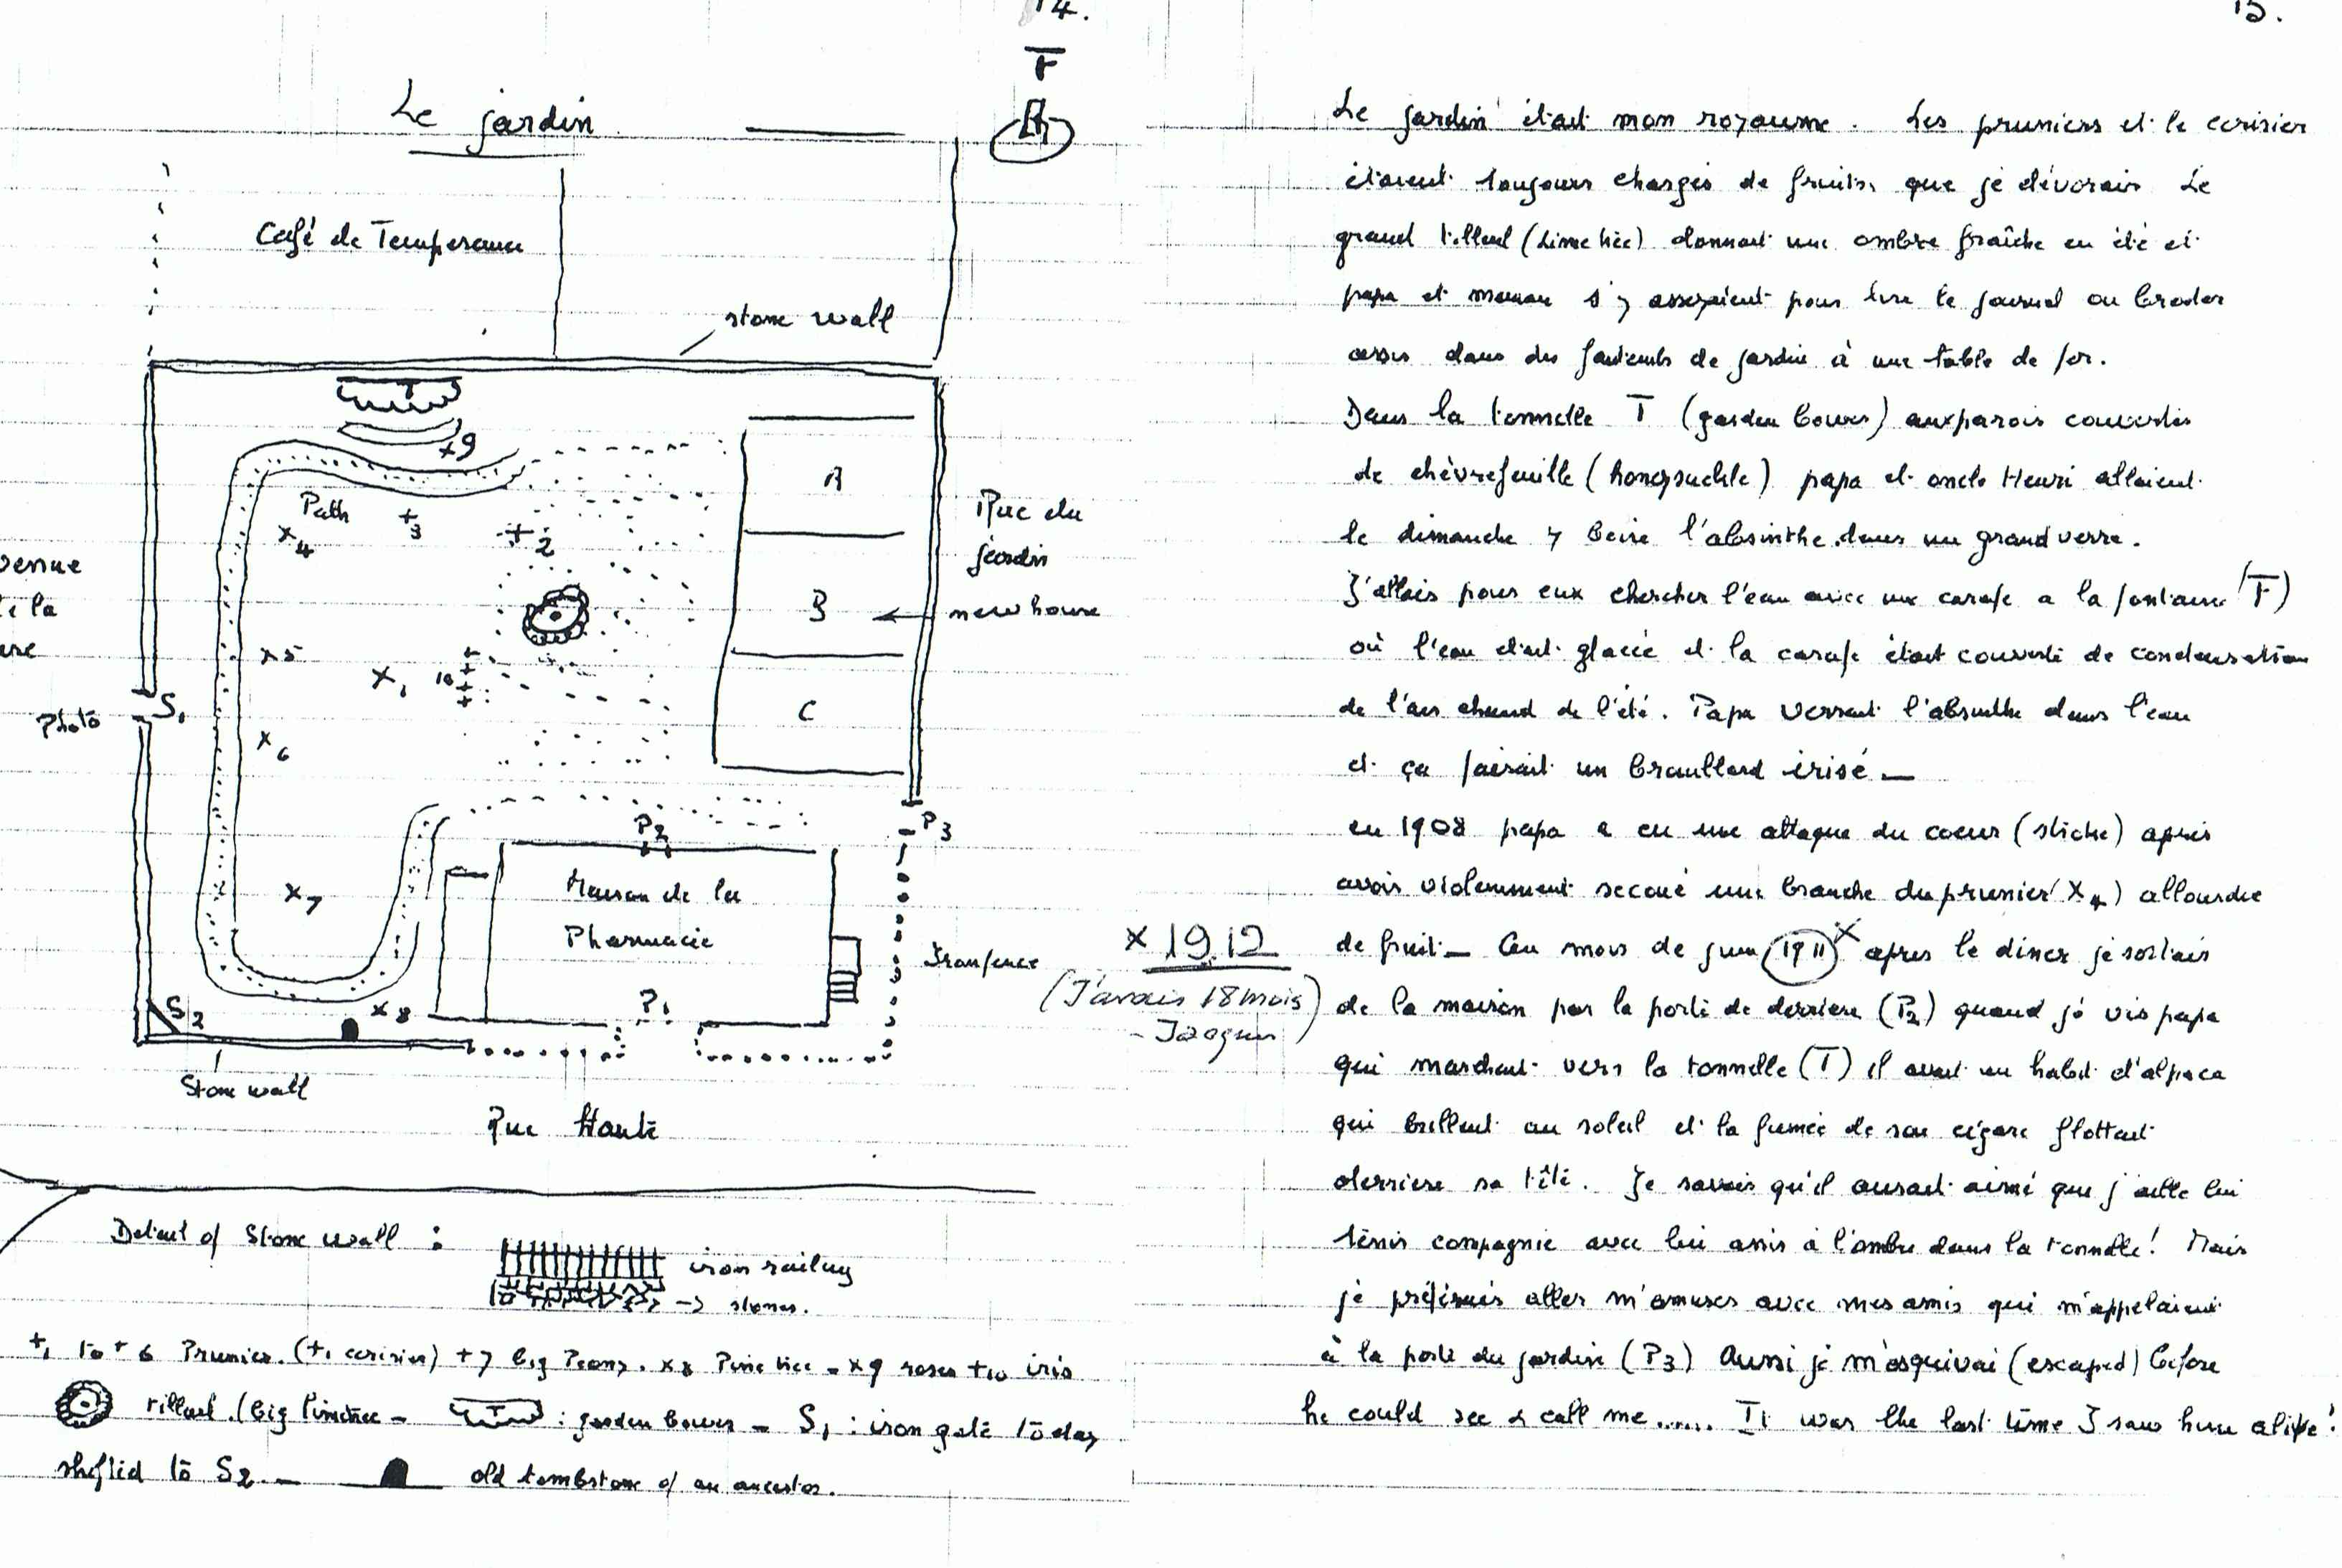 14.
F
Le jardin
Café de Temperance
stone wall
T
x9
Path
x4
+3
+2
A
B
C
Rue du
jardin
new house
venue
de la
are
x5
x1
10
S1
Photo
x6
P3
P2
x7
Maison de la
Pharmacie
Iron fence
S2
x8
P1
Stone wall
Rue Haute
Detail of Stone wall :
iron railing
-> stones.
+1 to + 6 Prunier. (+1 cerisier) +7 big Peony. x8 Pine tree - x9 roses +10 iris
tilleul. (big Limetree - T : garden bower - S1 : iron gate today
shifted to S2 - old tombstone of an ancestor.
15.
Le jardin était mon royaume. Les pruniers et le cerisier
étaient toujours chargés de fruits, que je dévorais Le
grand tilleul (Lime tree) donnait une ombre fraîche en été et
papa et maman s'y asseyaient pour lire le journal ou broder
assis dans des fauteuils de jardin à une table de fer.
Dans la tonnelle T (garden bower) aux parois couvertes
de chèvrefeuille (honeysuckle) papa et oncle Henri allaient
le dimanche y boire l'absinthe dans un grand verre.
J'allais pour eux chercher l'eau avec une carafe a la fontaine (F)
où l'eau était glacée et la carafe était couverte de condensation
de l'air chaud de l'été. Papa versait l'absinthe dans l'eau
et ça faisait un brouillard irisé -
en 1908 papa a eu une attaque du coeur (stroke) après
avoir violemment secoué une branche du prunier (x4) allourdie
de fruit - Au mois de juin 1911 x apres le diner je sortais
x 1912
(J'avais 18 mois
- Jacques)
de la maison par la porte de derriere (P2) quand je vis papa
qui marchait vers la tonnelle (T) il avait un habit d'alpaca
qui brillait au soleil et la fumée de son cigare flottait
derriere sa tête. Je savais qu'il aurait aimé que j'aille lui
tenir compagnie avec lui assis à l'ombre dans la tonnelle! Mais
je préférais aller m'amuser avec mes amis qui m'appelaient
à la porte du jardin (P3) Aussi je m'esquivai (escaped) before
he could see & call me ...... It was the last time I saw him alive!